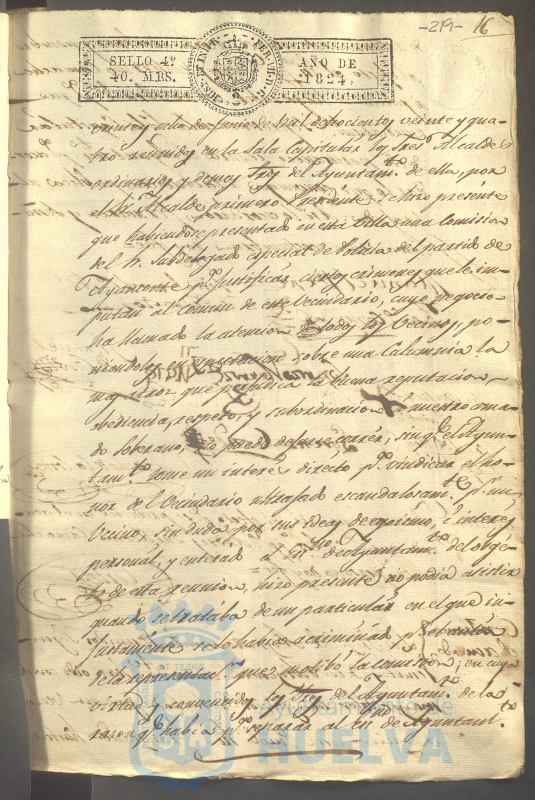 -219- 16
SELLO 4º
40. MRS.
AÑO DE
1824.
veinte y seis de Junio de mil ochocientos veinte y qua-
tro reunidos en la Sala Capitular los Sres. Alcaldes
ordinarios y demas Sres del Ayuntamto. de ella, por
el Sr. Alcalde primero Presidente se hizo presente
que habiendose presentado en esta Villa una Comision
del Sr. Subdelegado especial de Policia del partido de
Ayamonte pa. Justificar ciertos crimenes que le im-
putan al Comun de este Vecindario, cuyo negocio
ha llamado la atencion de todos los Vecinos, po-
niendoles en sobre una Calumnia la
mas atroz que perjudica la buena reputacion
obediencia, respeto, y subordinacion á nuestro ama-
do Soberano, no puede dejarse correr, sin qe. el Ayun-
tamto. tome un interes directo pa. vindicar el ho-
nor del Vecindario ultrajado escandalosamte. pr. un
Vecino, sin duda por sus ideas de egoismo, é interes
personal, y enterado el Sr. Srio. de Ayuntamto. del obge-
to de esta reunion, hizo presente no podia asistir
quando se trataba de un particular en el que in-
justamente se le habia acriminado pr.
de la representacn. que motibó la comision; en cuya
virtud y convencidos los Sres del Ayuntamto. de la
razon qe. habia pa. separar al Sr. Srio. de Ayuntamto.
Ayuntamiento de
HUELVA